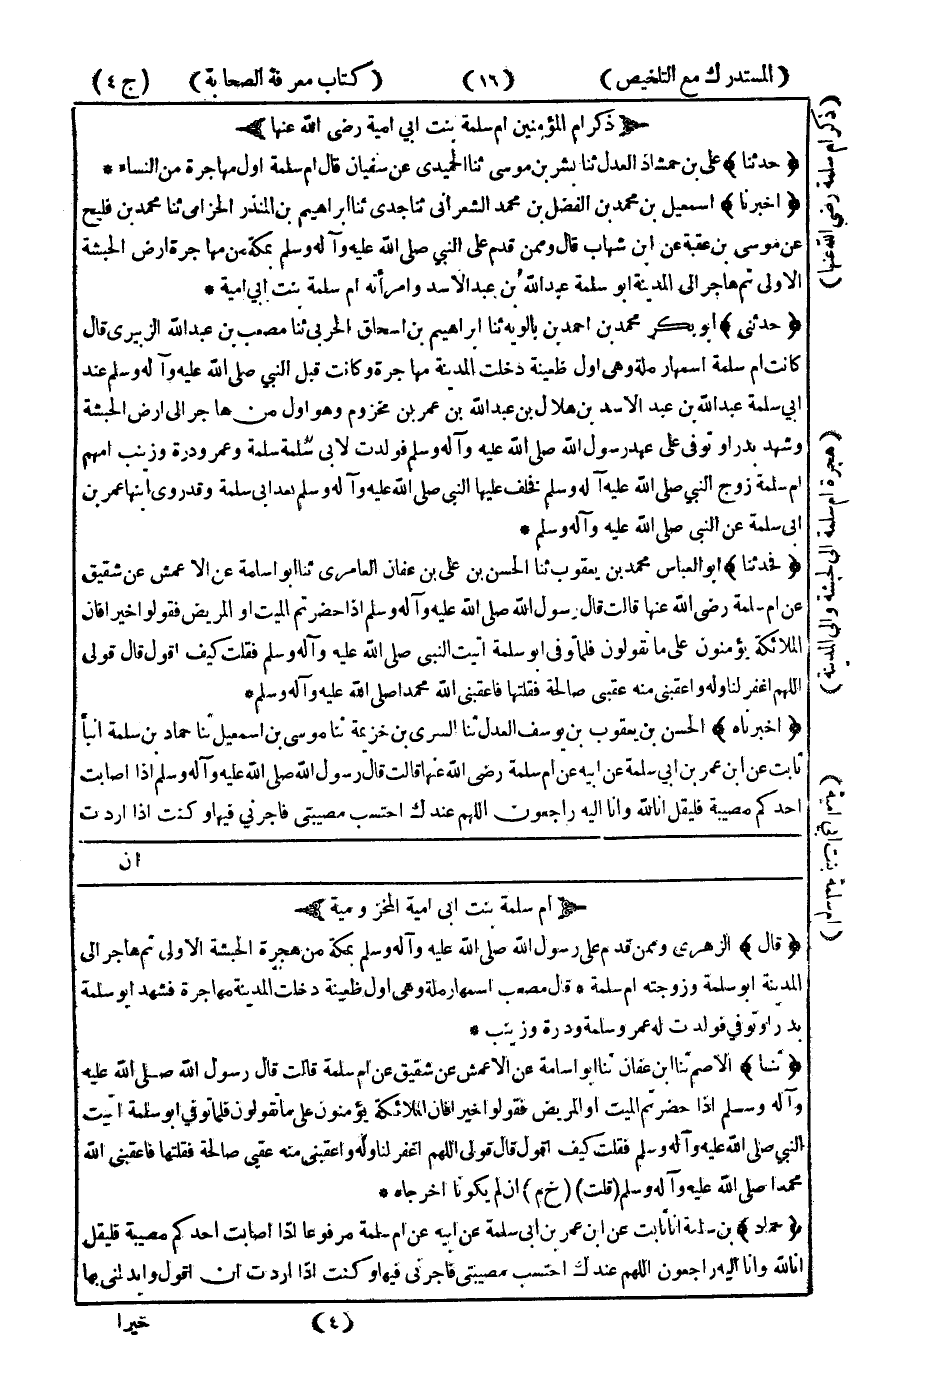 (المستدرك مع التلخيص) (١٦) (كتاب معرفة الصحابة) (ج ٤)
ذكر ام المؤمنين ام سلمة بنت ابى امية رضى الله عنها
﴿ حدثنا ﴾ على بن حمشاذ العدل ثنا بشر بن موسى ثنا الحميدى عن سفيان قال ام سلمة اول مهاجرة من النساء *
﴿ اخبرنا ﴾ اسمعيل بن محمد بن الفضل بن محمد الشعرانى ثنا جدى ثنا ابراهيم بن المنذر الحزامى ثنا محمد بن فليح
عن موسى بن عقبة عن ابن شهاب قال وممن قدم على النبي صلى الله عليه وآله وسلم بمكة من مهاجرة ارض الحبشة
الاولى ثم هاجر الى المدينة ابو سلمة عبدالله بن عبدالاسد وامرأته ام سلمة بنت ابي امية *
﴿ حدثنى ﴾ ابوبكر محمد بن احمد بن بالويه ثنا ابراهيم بن اسحاق الحربى ثنا مصعب بن عبدالله الزبيرى قال
كانت ام سلمة اسمها رملة وهى اول ظعينة دخلت المدينة مهاجرة وكانت قبل النبي صلى الله عليه وآله وسلم عند
ابي سلمة عبدالله بن عبد الاسد بن هلال بن عبدالله بن عمر بن مخزوم وهو اول من هاجر الى ارض الحبشة
وشهد بدرا وتوفى على عهد رسول الله صلى الله عليه وآله وسلم فولدت لابى سلمة سلمة وعمر ودرة وزينب امهم
ام سلمة زوج النبي صلى الله عليه وآله وسلم فخلف عليها النبي صلى الله عليه وآله وسلم بعد ابى سلمة وقد روى ابنها عمر بن
ابى سلمة عن النبى صلى الله عليه وآله وسلم *
﴿ فحدثنا ﴾ ابو العباس محمد بن يعقوب ثنا الحسن بن على بن عفان العامرى ثنا ابو اسامة عن الاعمش عن شقيق
عن ام سلمة رضى الله عنها قالت قال رسول الله صلى الله عليه وآله وسلم اذا حضرتم الميت او المريض فقولوا خيرا فان
الملائكة يؤمنون على ما تقولون فلما توفى ابو سلمة اتيت النبى صلى الله عليه وآله وسلم فقلت كيف اقول قال قولى
اللهم اغفر لنا وله واعقبنى منه عقبى صالحة فقلتها فاعقبنى الله محمدا صلى الله عليه وآله وسلم *
﴿ اخبرناه ﴾ الحسن بن يعقوب بن يوسف العدل ثنا السرى بن خزيمة ثنا موسى بن اسمعيل ثنا حماد بن سلمة انبأ
ثابت عن ابن عمر بن ابى سلمة عن ابيه عن ام سلمة رضى الله عنها قالت قال رسول الله صلى الله عليه وآله وسلم اذا اصابت
احدكم مصيبة فليقل انا لله وانا اليه راجعون اللهم عندك احتسب مصيبتى فاجرنى فيها وكنت اذا اردت
ان
ام سلمة بنت ابى امية المخزومية
﴿ قال ﴾ الزهرى وممن قدم على رسول الله صلى الله عليه وآله وسلم بمكة من هجرة الحبشة الاولى ثم هاجر الى
المدينة ابو سلمة وزوجته ام سلمة * قال مصعب اسمها رملة وهى اول ظعينة دخلت المدينة مهاجرة فشهد ابو سلمة
بدرا وتوفي فولدت له عمر وسلمة ودرة وزينب *
﴿ ثنا ﴾ الاصم ثنا ابن عفان ثنا ابو اسامة عن الاعمش عن شقيق عن ام سلمة قالت قال رسول الله صلى الله عليه
وآله وسلم اذا حضرتم الميت او المريض فقولوا خيرا فان الملائكة يؤمنون على ما تقولون فلما توفي ابو سلمة اتيت
النبي صلى الله عليه وآله وسلم فقلت كيف اقول قال قولى اللهم اغفر لنا وله واعقبنى منه عقبى صالحة فقلتها فاعقبنى الله
محمدا صلى الله عليه وآله وسلم (قلت) (خ م) ان لم يكونا اخرجاه *
﴿ حماد ﴾ بن سلمة انا ثابت عن ابن عمر بن ابى سلمة عن ابيه عن ام سلمة مرفوعا اذا اصابت احدكم مصيبة فليقل
انا لله وانا اليه راجعون اللهم عندك احتسب مصيبتى فاجرنى فيها وكنت اذا اردت ان اقول وابدلنى بها
(٤) خيرا
(ذكر ام سلمة رضي الله عنها)
(هجرة ام سلمة الى الحبشة والى المدينة)
(ام سلمة بنت ابي امية)